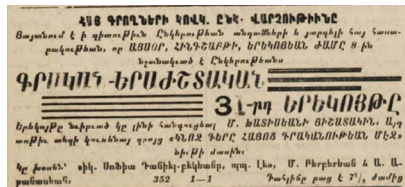 ՀԱՅ ԳՐՈՂՆԵՐԻ ԿՈՎԿ. ԸՆԿ. ՎԱՐՉՈՒԹԻՒՆԸ
Յայտնում է ի գիտութիւն Ընկերութեան անդամների և յարգելի հայ հասա-
րակութեան, որ ԱՅՍՕՐ, ՀԻՆԳՇԱԲԹԻ, ԵՐԵԿՈՅԵԱՆ ԺԱՄԸ 8-ին
նշանակուած է Ընկերութեանս
ԳՐԱԿԱՆ-ԵՐԱԺՇՏԱԿԱՆ
31-րդ ԵՐԵԿՈՅԹԸ
Երեկոյթը նուիրւած կը լինի հանգուցեալ Մ. ԽԱՏԻՍԵԱՆԻ ՅԻՇՏԱԿԻՆ. Այդ
առթիւ տեղի կունենայ զրոյց «ԿՆՈՋ ԴԵՐԸ ՀԱՅՈՑ ԳՐԱԿԱՆՈՒԹԵԱՆ ՄԷՋ»
նիւթի մասին:
Կը խօսեն՝ տիկ. Սոֆիա Դանիէլ-բէկեանը, պպ. Լէօ, Մ. Բերբերեան և Ա. Ա-
352 1—1 Դահլիճը բաց է 7½ ժամից